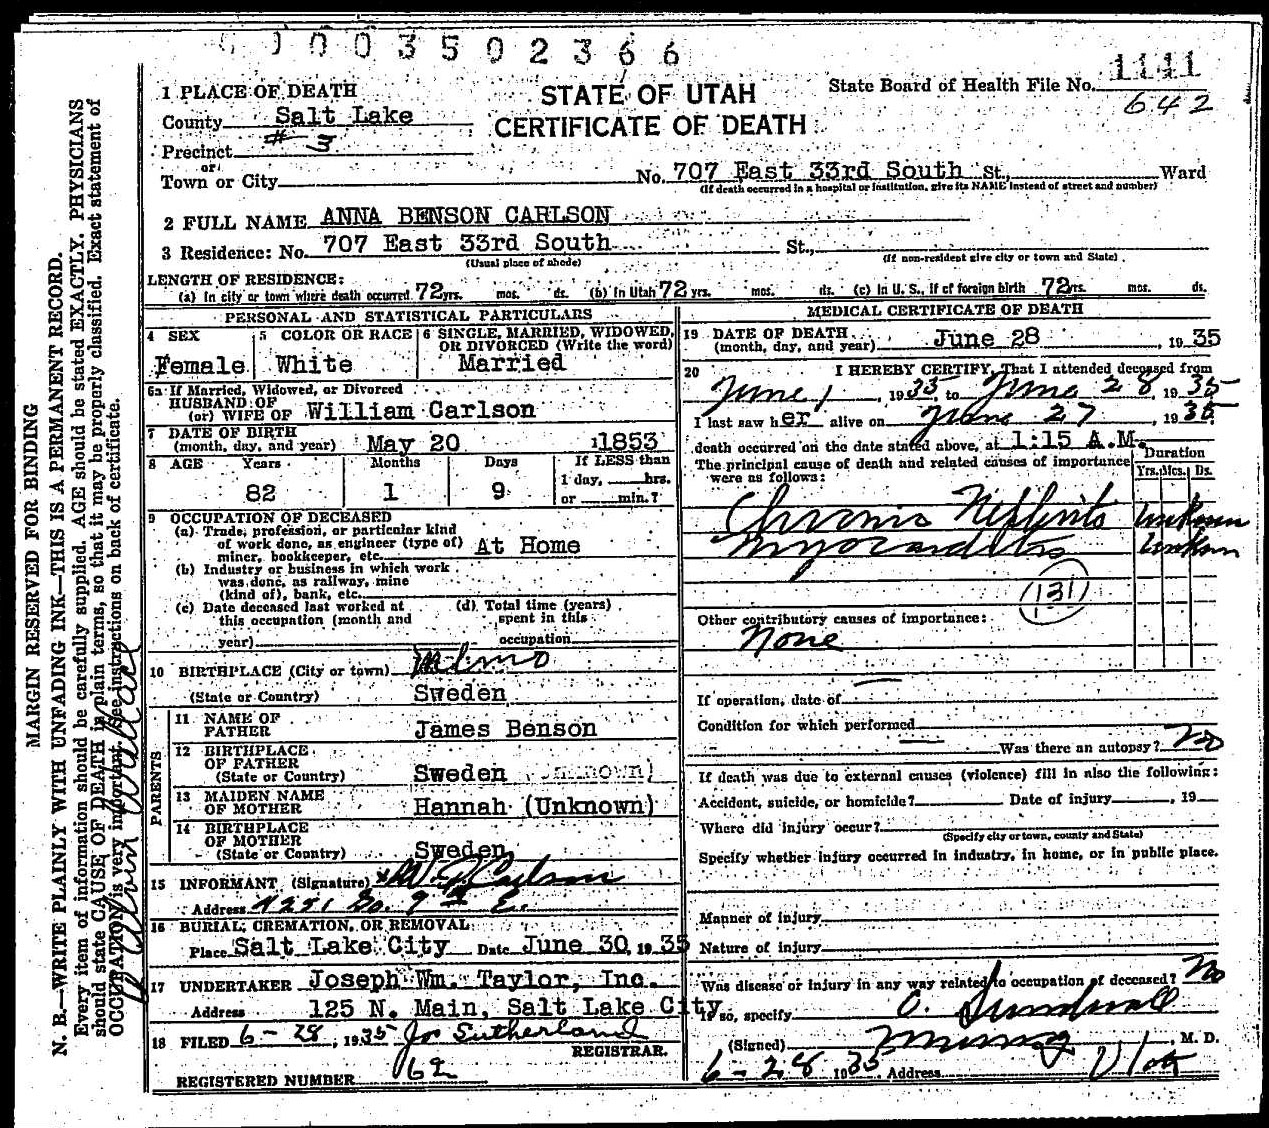 0003502366
1 PLACE OF DEATH
County Salt Lake
Precinct # 3
or
Town or City
STATE OF UTAH
CERTIFICATE OF DEATH
State Board of Health File No. 1141
642
No. 707 East 33rd South St., Ward
(If death occurred in a hospital or institution, give its NAME instead of street and number)
2 FULL NAME ANNA BENSON CARLSON
3 Residence: No. 707 East 33rd South St.,
(Usual place of abode) (If non-resident give city or town and State)
LENGTH OF RESIDENCE:
(a) In city or town where death occurred 72 yrs. mos. ds. (b) In Utah 72 yrs. mos. ds. (c) In U. S., if of foreign birth 72 yrs. mos. ds.
PERSONAL AND STATISTICAL PARTICULARS
4 SEX Female
5 COLOR OR RACE White
6 SINGLE, MARRIED, WIDOWED, OR DIVORCED (Write the word)
Married
6a If Married, Widowed, or Divorced
HUSBAND OF
(or) WIFE OF William Carlson
7 DATE OF BIRTH
(month, day, and year) May 20 11853
8 AGE Years Months Days If LESS than
1 day, hrs.
82 1 9 or min.?
9 OCCUPATION OF DECEASED
(a) Trade, profession, or particular kind
of work done, as engineer (type of)
miner, bookkeeper, etc. At Home
(b) Industry or business in which work
was done, as railway, mine
(kind of), bank, etc.
(c) Date deceased last worked at
this occupation (month and
year)
(d) Total time (years)
spent in this
occupation
10 BIRTHPLACE (City or town)
(State or Country) Sweden
PARENTS
11 NAME OF
FATHER James Benson
12 BIRTHPLACE
OF FATHER
(State or Country) Sweden
13 MAIDEN NAME
OF MOTHER Hannah (Unknown)
14 BIRTHPLACE
OF MOTHER
(State or Country) Sweden
15 INFORMANT (Signature) Carlson
Address So. 9th E.
16 BURIAL, CREMATION, OR REMOVAL
Place Salt Lake City Date June 30, 1935
17 UNDERTAKER Joseph Wm. Taylor, Inc.
Address 125 N. Main, Salt Lake City
18 FILED 6-28, 1935 Jos Sutherland
REGISTRAR.
REGISTERED NUMBER 162
MEDICAL CERTIFICATE OF DEATH
19 DATE OF DEATH
(month, day, and year) June 28, 1935
20 I HEREBY CERTIFY, That I attended deceased from
June 1, 1935, to June 28, 1935
I last saw her alive on June 27, 1935
death occurred on the date stated above, at 1:15 A.M.
The principal cause of death and related causes of importance
were as follows:
Duration
Yrs. Mos. Ds.
Chronic Nephritis Unknown
Myocarditis Unknown
(131)
Other contributory causes of importance:
None
If operation, date of
Condition for which performed
Was there an autopsy? No
If death was due to external causes (violence) fill in also the following:
Accident, suicide, or homicide? Date of injury , 19
Where did injury occur?
(Specify city or town, county and State)
Specify whether injury occurred in industry, in home, or in public place.
Manner of injury
Nature of injury
Was disease or injury in any way related to occupation of deceased? No
If so, specify
(Signed) O. Sundwall, M. D.
6-28 1935 Address Murray Utah
MARGIN RESERVED FOR BINDING
N. B.—WRITE PLAINLY WITH UNFADING INK—THIS IS A PERMANENT RECORD.
Every item of information should be carefully supplied. AGE should be stated EXACTLY. PHYSICIANS
should state CAUSE OF DEATH in plain terms, so that it may be properly classified. Exact statement of
OCCUPATION is very important. See instructions on back of certificate.